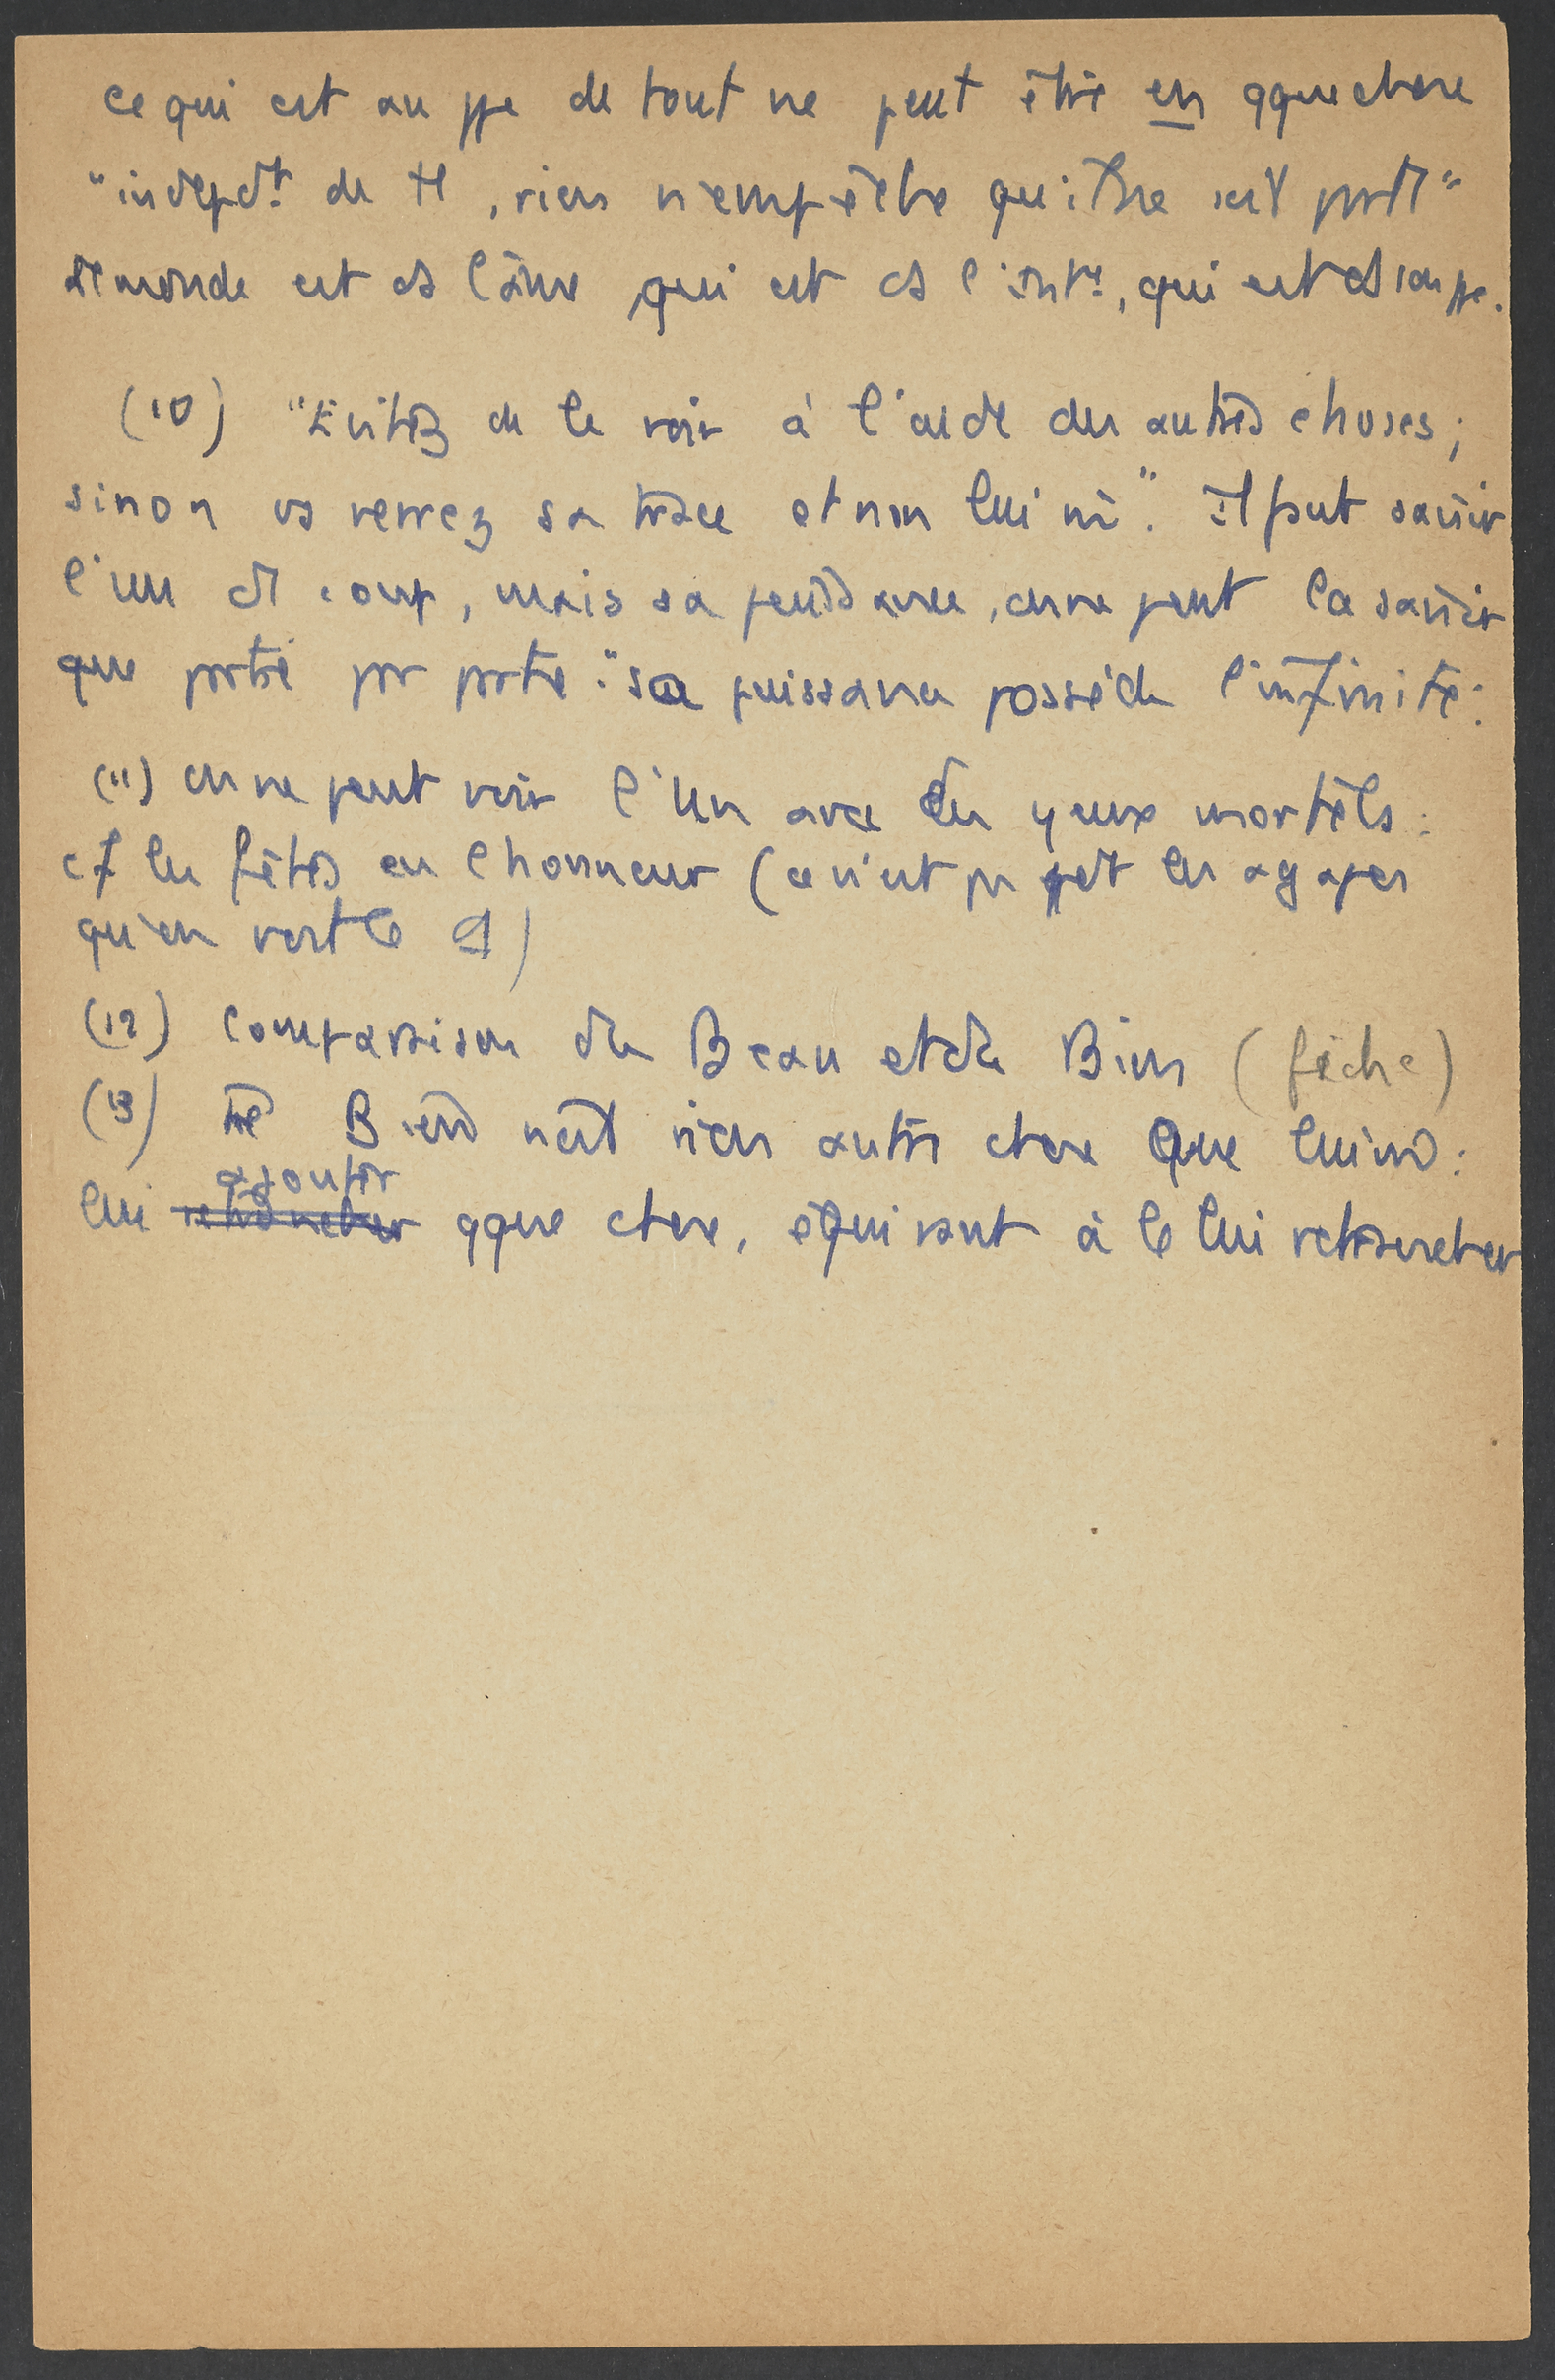 ce qui est au ppe de tout ne peut être en qque chose
"indépdt de tt, rien n'empêche qu'il ne soit partt"
le monde est ds l'âme, qui est ds l'intce, qui est ds son ppe.
(10) "Evitez de le voir à l'aide des autres choses;
sinon vs verrez sa trace et non lui m̂". Il faut saisir
l'un d'1 coup, mais sa puissance, on ne peut la saisir
que partie par partie: "sa puissance possède l'infinité:
(11) on ne peut voir l'Un avec des yeux mortels:
cf les fêtes en l'honneur (ce n'est pas pdt les agapes
qu'on voit le
(12) Comparaison du Beau et du Bien (fiche)
(13) le Bien n'est rien autre chose que lui m̂:
ajouter
lui retrancher qque chose, équivaut à le lui retrancher